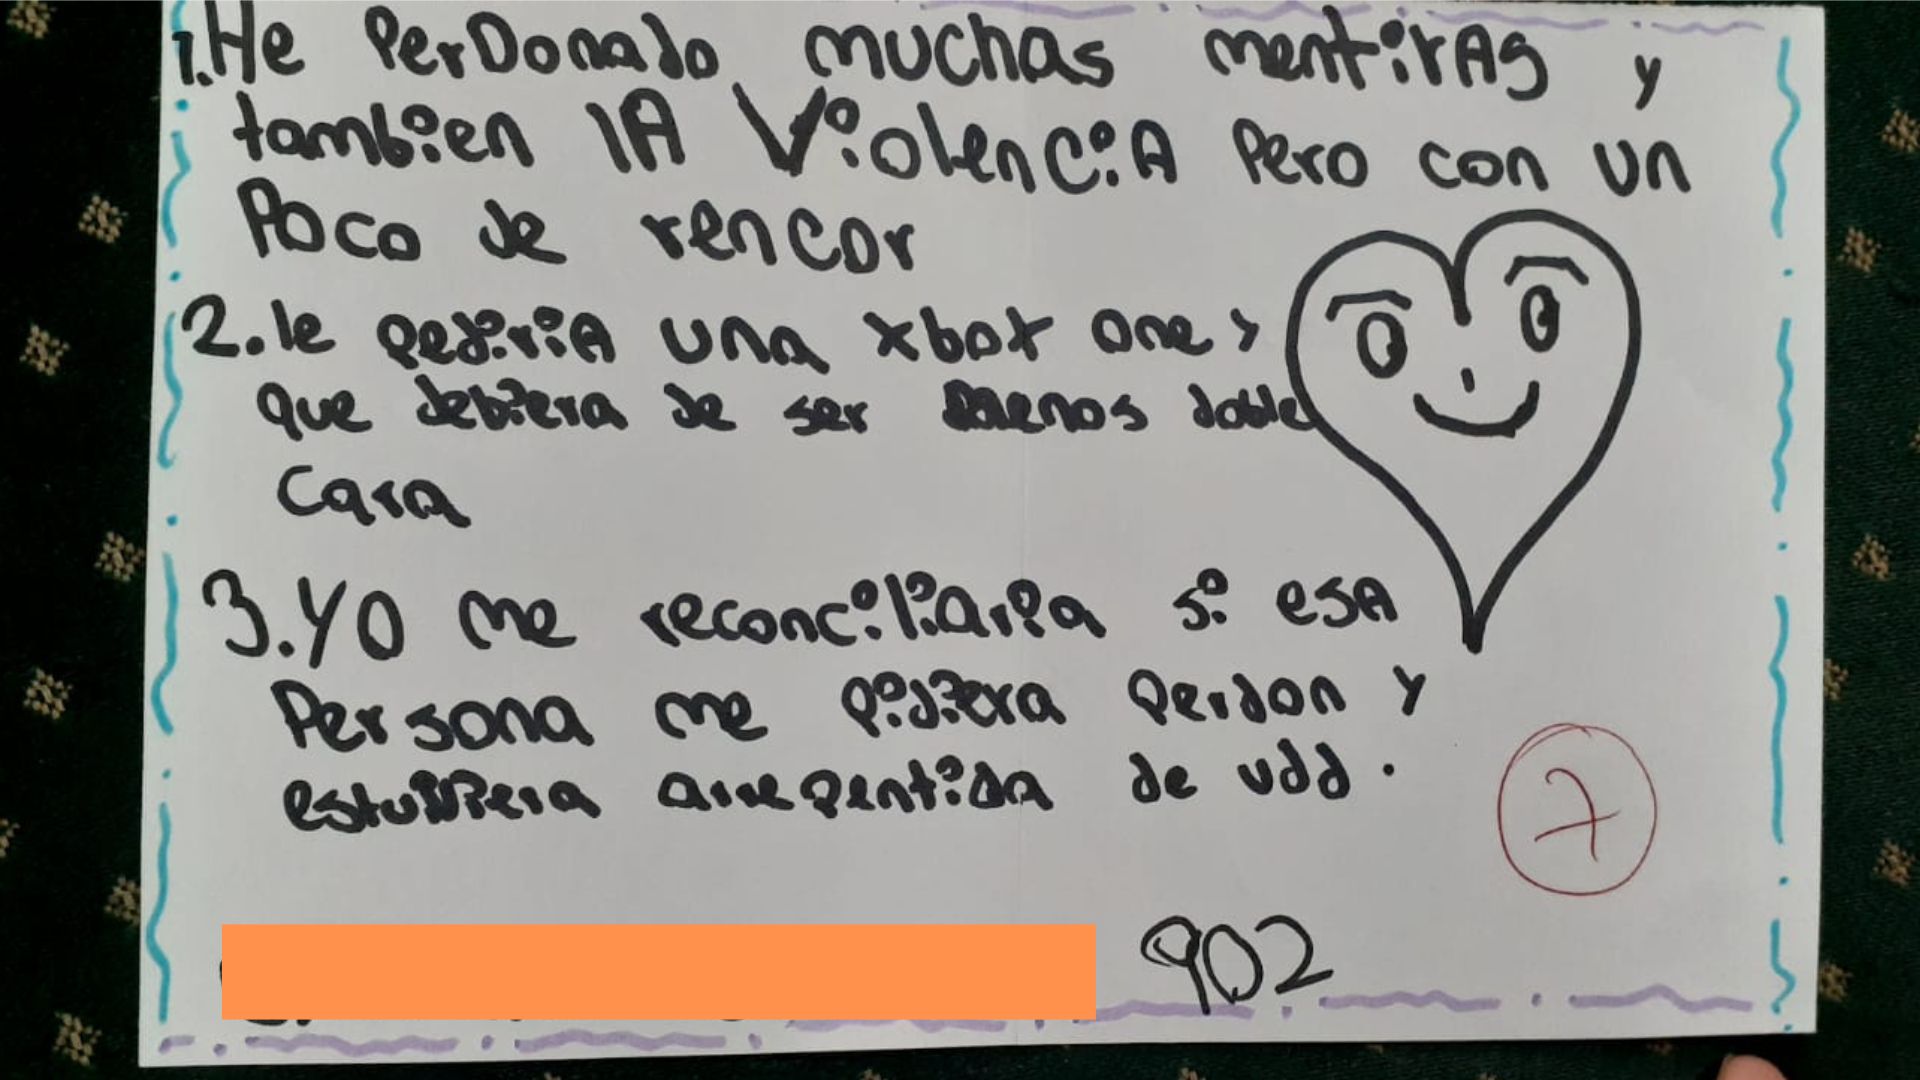 1. He PerDonado muchas mentirAs y
tambien lA ViolenciA Pero con un
Poco de rencor
2. le pediriA una xbox one y
que debiera de ser menos doble
Cara
3. Yo me reconciliaria si esA
Persona me pidiera perdon y
estuviera arrepentida de vdd.
7
902